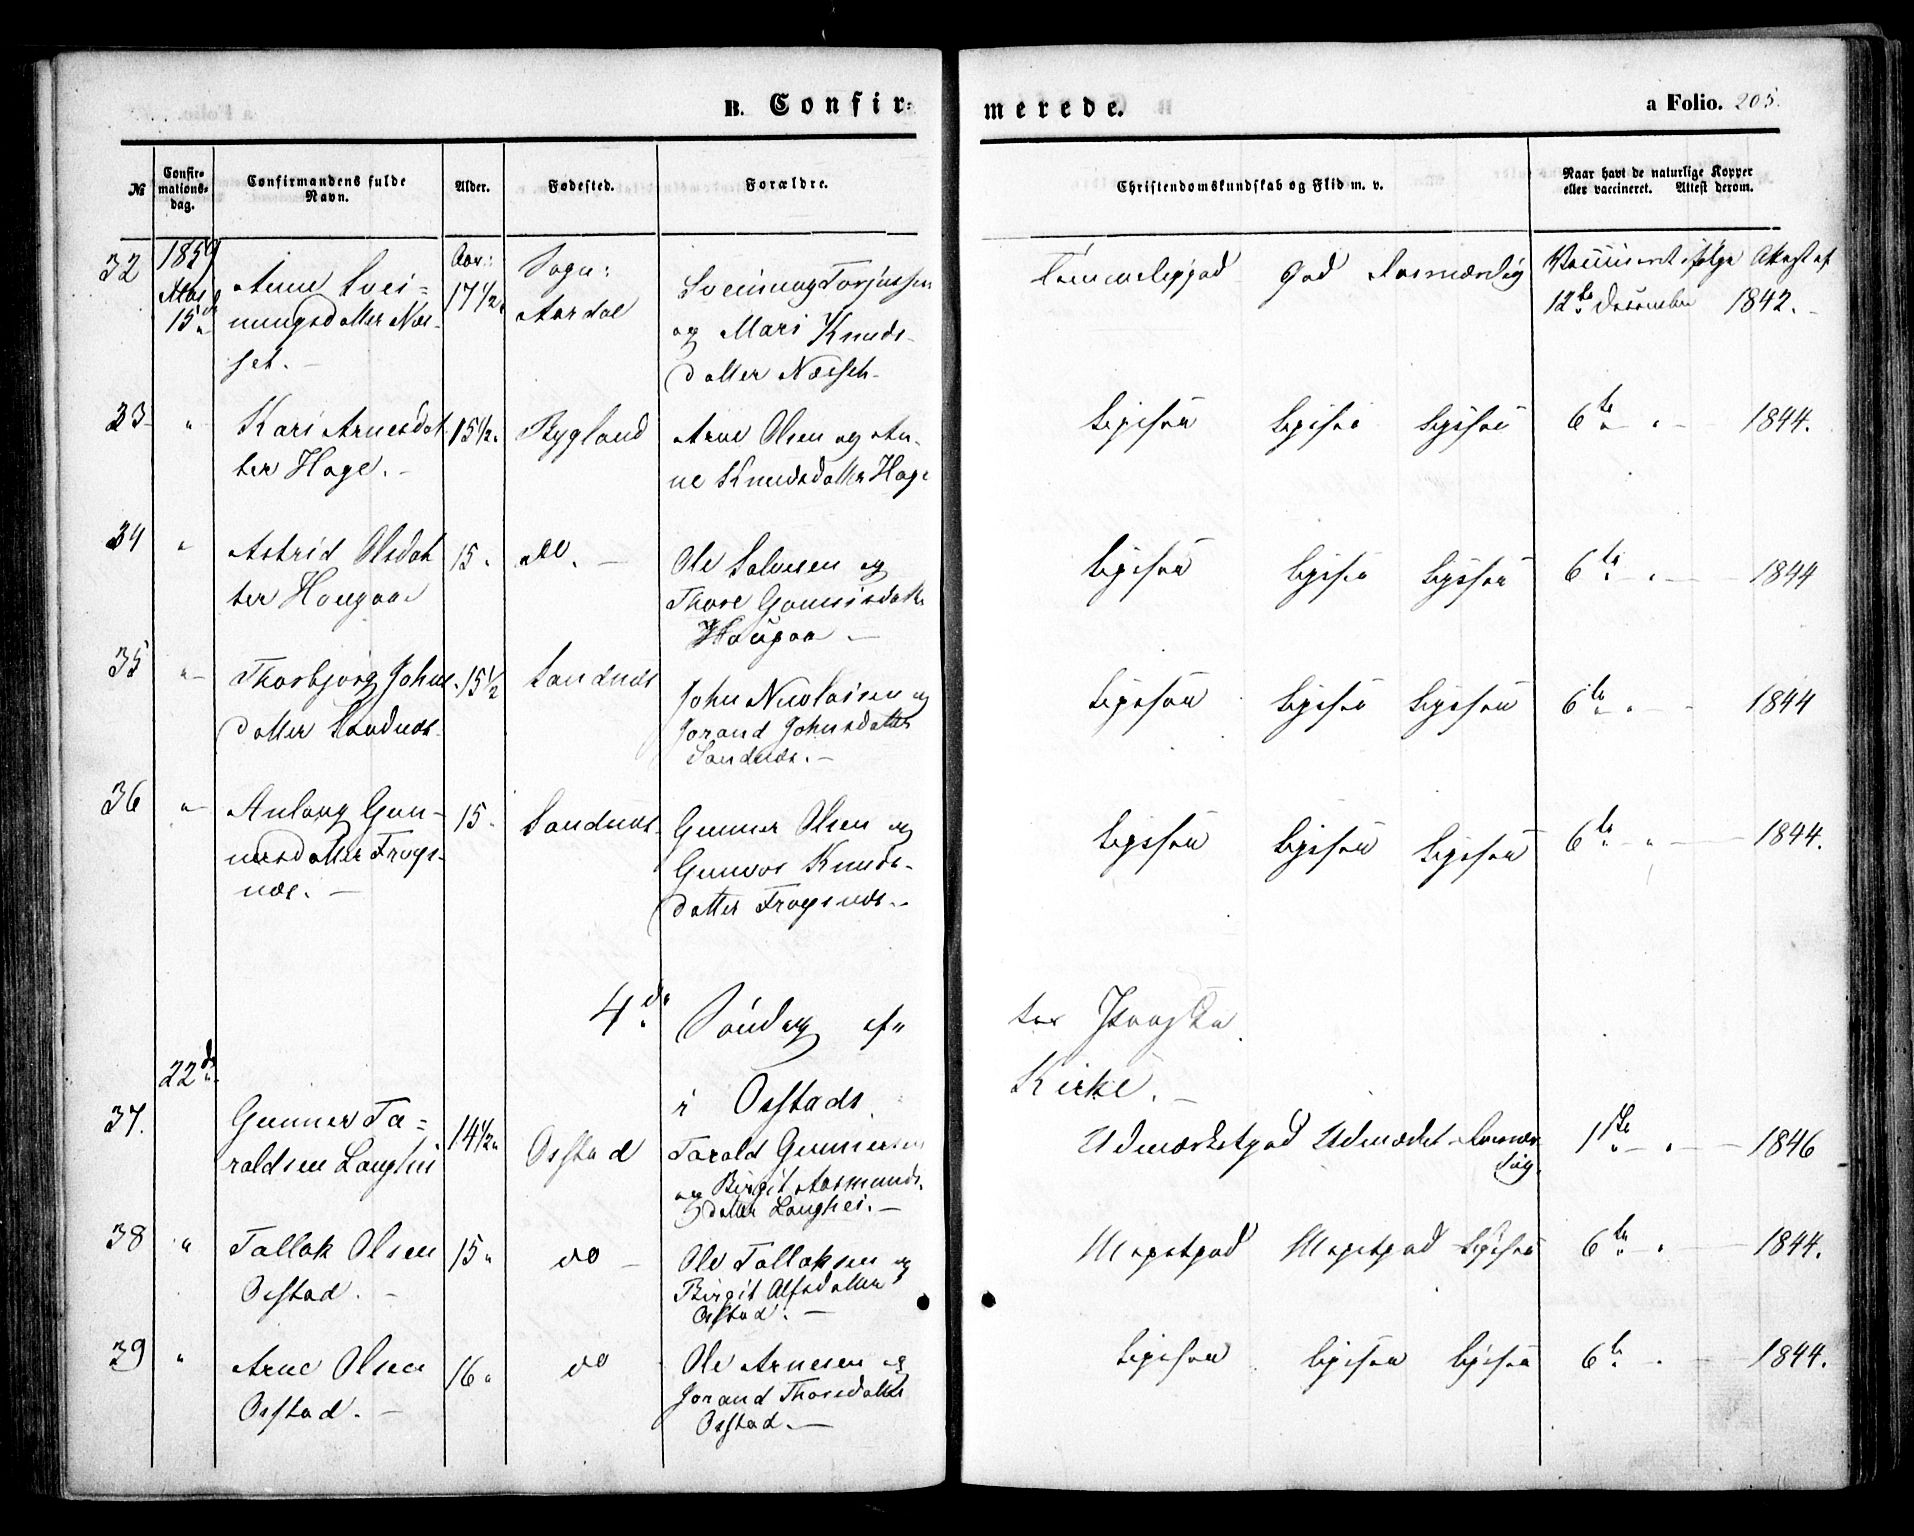 B. Confir-
merede.
a Folio. 205.
№
Confir-
mations-
dag.
Confirmandens fulde
Navn.
Alder.
Fødested.
Forældre.
Christendomskundskab og Flid m. v.
Naar havt de naturlige Kopper
eller vaccineret. Attest derom.
32
1859
Mai
15de
Anne Svei-
nungsdatter Næs-
set. -
Aar:
17 1/2
Sogn:
Aardal
Sveinung Torjussen
og Mari Knuds-
datter Næsset.
Temmelig god
God
Troværdig
Vaccineret ifølge Attest af
12te December 1842. -
33
"
Kari Arnesdat-
ter Hage. -
15 1/2
Bygland
Arne Olsen og An-
ne Knudsdatter Hage
Ligesaa
Ligesaa
Ligesaa
6te " - 1844.
34
"
Astrid Olsdat-
ter Haugaa
15
do. -
Ole Salvesen og
Thore Gunnersdatter
Haugaa -
Ligesaa
Ligesaa
Ligesaa
6te " - 1844
35
"
Thorbjørg Johns-
datter Sandnæs
15 1/2
Sandnæs
John Nicolaisen og
Jorand Johnsdatter
Sandnæs. -
Ligesaa
Ligesaa
Ligesaa
6te " - 1844
36
"
Anlaug Gun-
nersdatter Frøys-
næs. -
15
Sandnæs
Gunner Olsen og
Gunvor Knuds-
datter Frøysnæs. -
Ligesaa
Ligesaa
Ligesaa
6te " - 1844.
4de Søndag ef-
ter Paaske
22de
i Osstads
Kirke. -
37.
Gunner Ta-
raldsen Langhei
14 1/2
Osstad
Tarald Gunnersen
og Birgit Aasmunds-
datter Langhei. -
Udmærket god
Udmærket
1ste " - 1846
38
"
Tallak Olsen
Osstad. -
15
do -
Ole Tallaksen og
Birgit Alfsdatter
Osstad. -
Meget god
Meget god
Ligesaa
6te " - 1844.
39
"
Arne Olsen
Osstad. -
16
do
Ole Arnesen og
Jorand Thorsdatter
Osstad. -
Ligesaa
Ligesaa
Ligesaa
6te " - 1844.